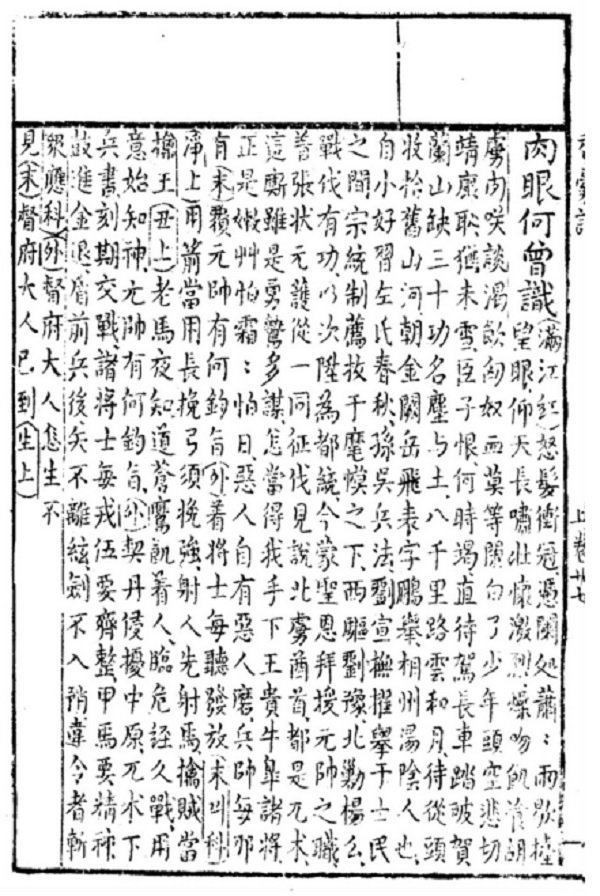 肉眼何曾識(滿江紅)怒髮衝冠憑闌处蕭〻雨歇擡
望眼仰天長嘯壯懷激烈燥吻飢飡胡
虜肉咲談渴飲匈奴血莫等閒白了少年頭空悲切
靖康恥猶未雪臣子恨何時竭直待駕長車踏破賀
蘭山缺三十功名塵与土八千里路雲和月待從頭
收拾舊山河朝金闕岳飛表字鵬舉相州湯陰人也
自小好習左氏春秋孫吳兵法劉宣撫擢舉于士民
之間宗統制薦拔于麾幙之下西驅劉豫北勦楊么
戰伐有功以次陞為都統今蒙聖恩拜授元帥之職
着張状元護從一同征伐見說北虜酋首都是兀术
這厮雖是勇鷙多謀怎當得我手下王貴牛皐諸將
正是嫩艸怕霜〻怕日惡人自有惡人磨兵帥每那
有(末)覆元帥有何鈞旨(外)着將士每聽發放(末叫科)
(淨上)用箭當用長挽弓須挽強射人先射馬擒賊當
擒王(丑上)老馬夜知道蒼鷹飢着人臨危經久戰用
意始知神元帥有何鈞旨(外)契丹侵擾中原兀术下
兵書刻期交戰諸將士每戎伍要齊整甲馬要精神
鼓進金退眉前兵後矢不離絃劍不入鞘違令者斬
(衆應科)(外)督府大人怎生不
見(末)督府大人已到(生上)
上卷廿七